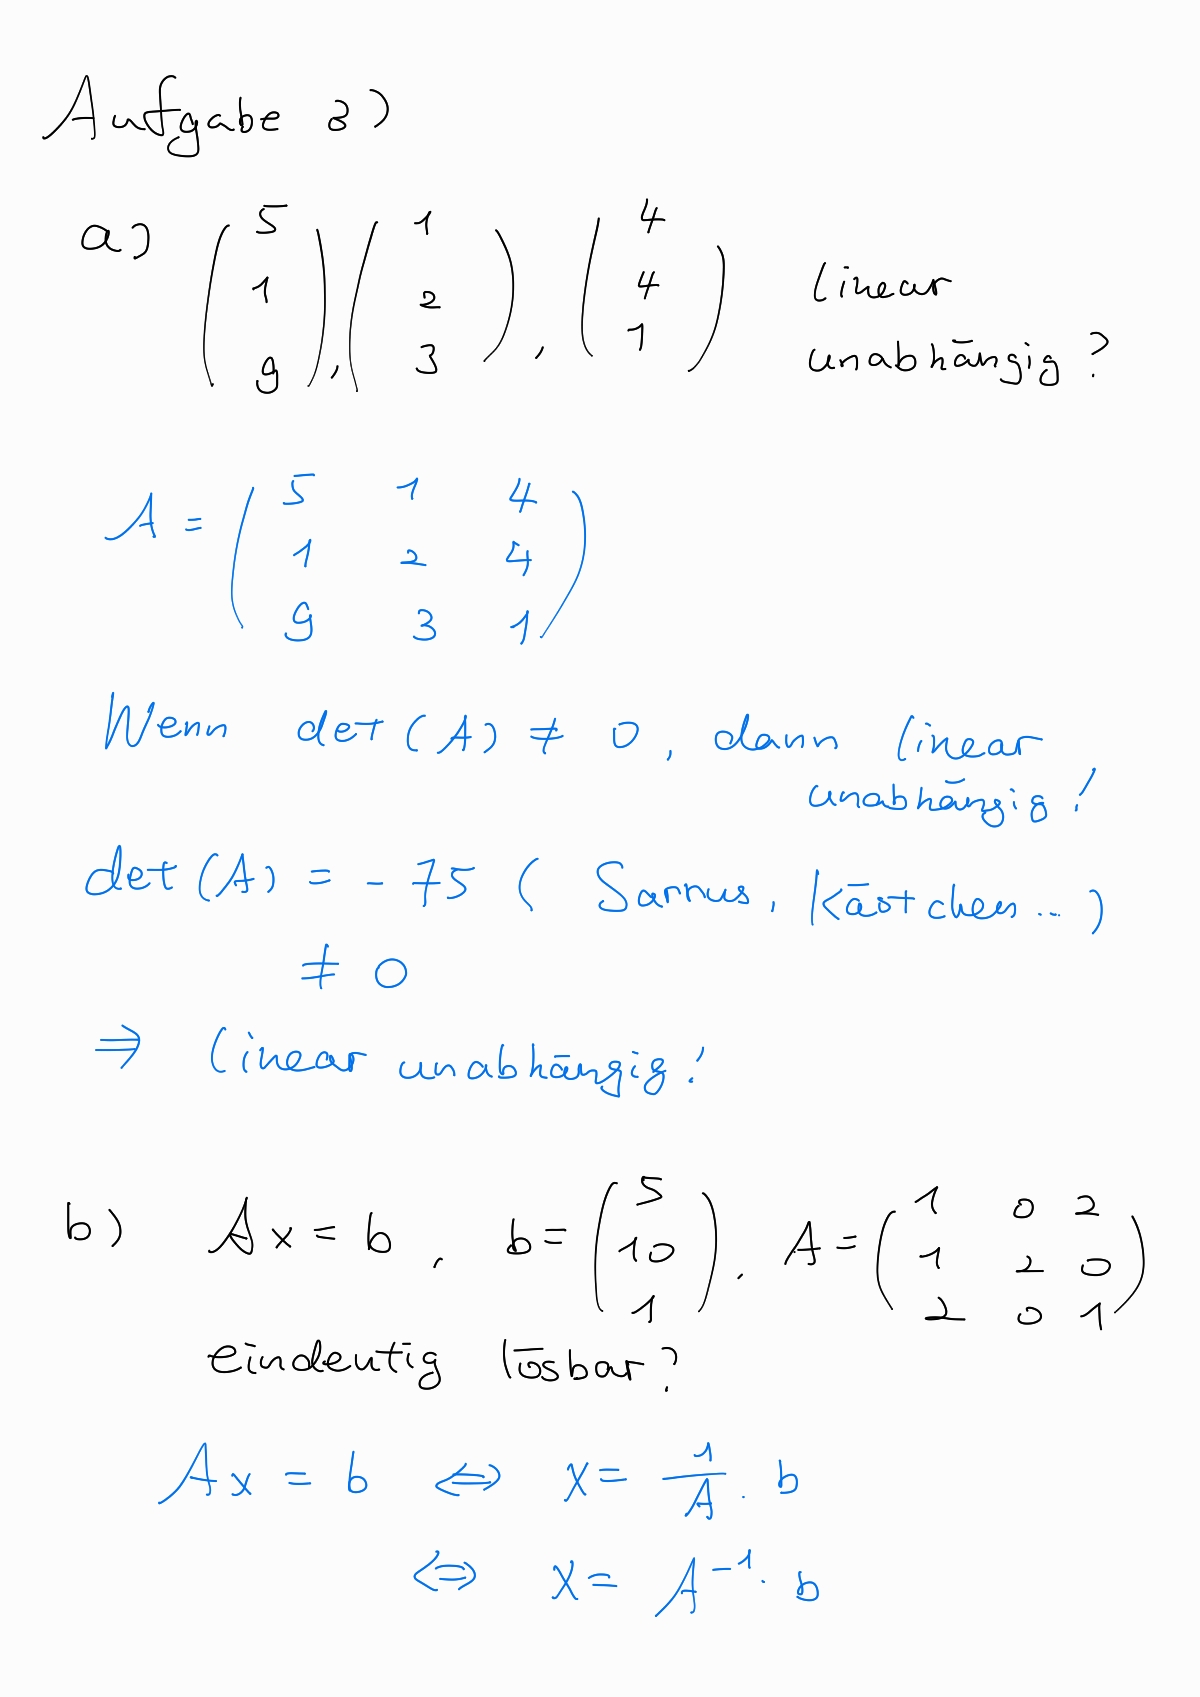 Aufgabe 3)
a) (5 1 9), (1 2 3), (4 4 1) linear
unabhängig?
A = (5 1 4
1 2 4
9 3 1)
Wenn det(A) ≠ 0, dann linear
unabhängig!
det(A) = -75 (Sarrus, Kästchen...)
≠ 0
⇒ linear unabhängig!
b) Ax = b, b = (5 10 1), A = (1 0 2
1 2 0
2 0 1)
eindeutig lösbar?
Ax = b ⇔ x = 1/A · b
⇔ x = A⁻¹ · b